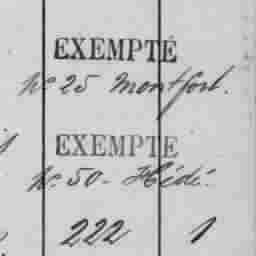 EXEMPTÉ
No 25 Montfort.
EXEMPTE
No 50 - Hédé.
222 1